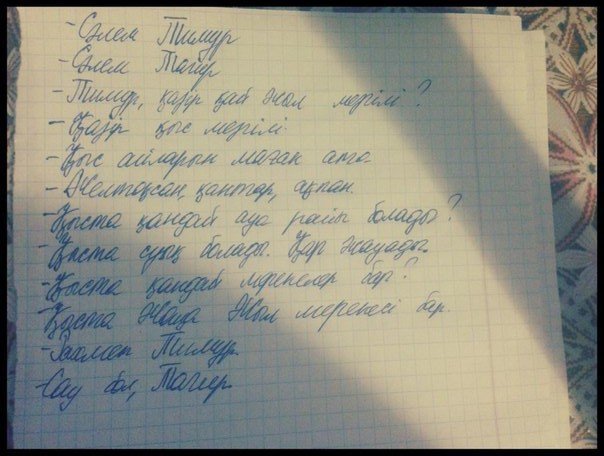 - Сәлем Тимур
- Сәлем Тагир
- Тимур, қазір қай жыл мезгілі?
- Қазір қыс мезгілі.
- Қыс айларын маған ата.
- Желтоқсан, қаңтар, ақпан.
- Қыста қандай ауа райы болады?
- Қыста суық болады. Қар жауады.
- Қыста қандай мерекелер бар?
- Қыста Жаңа Жыл мерекесі бар.
- Рахмет Тимур.
- Сау бол, Тагир